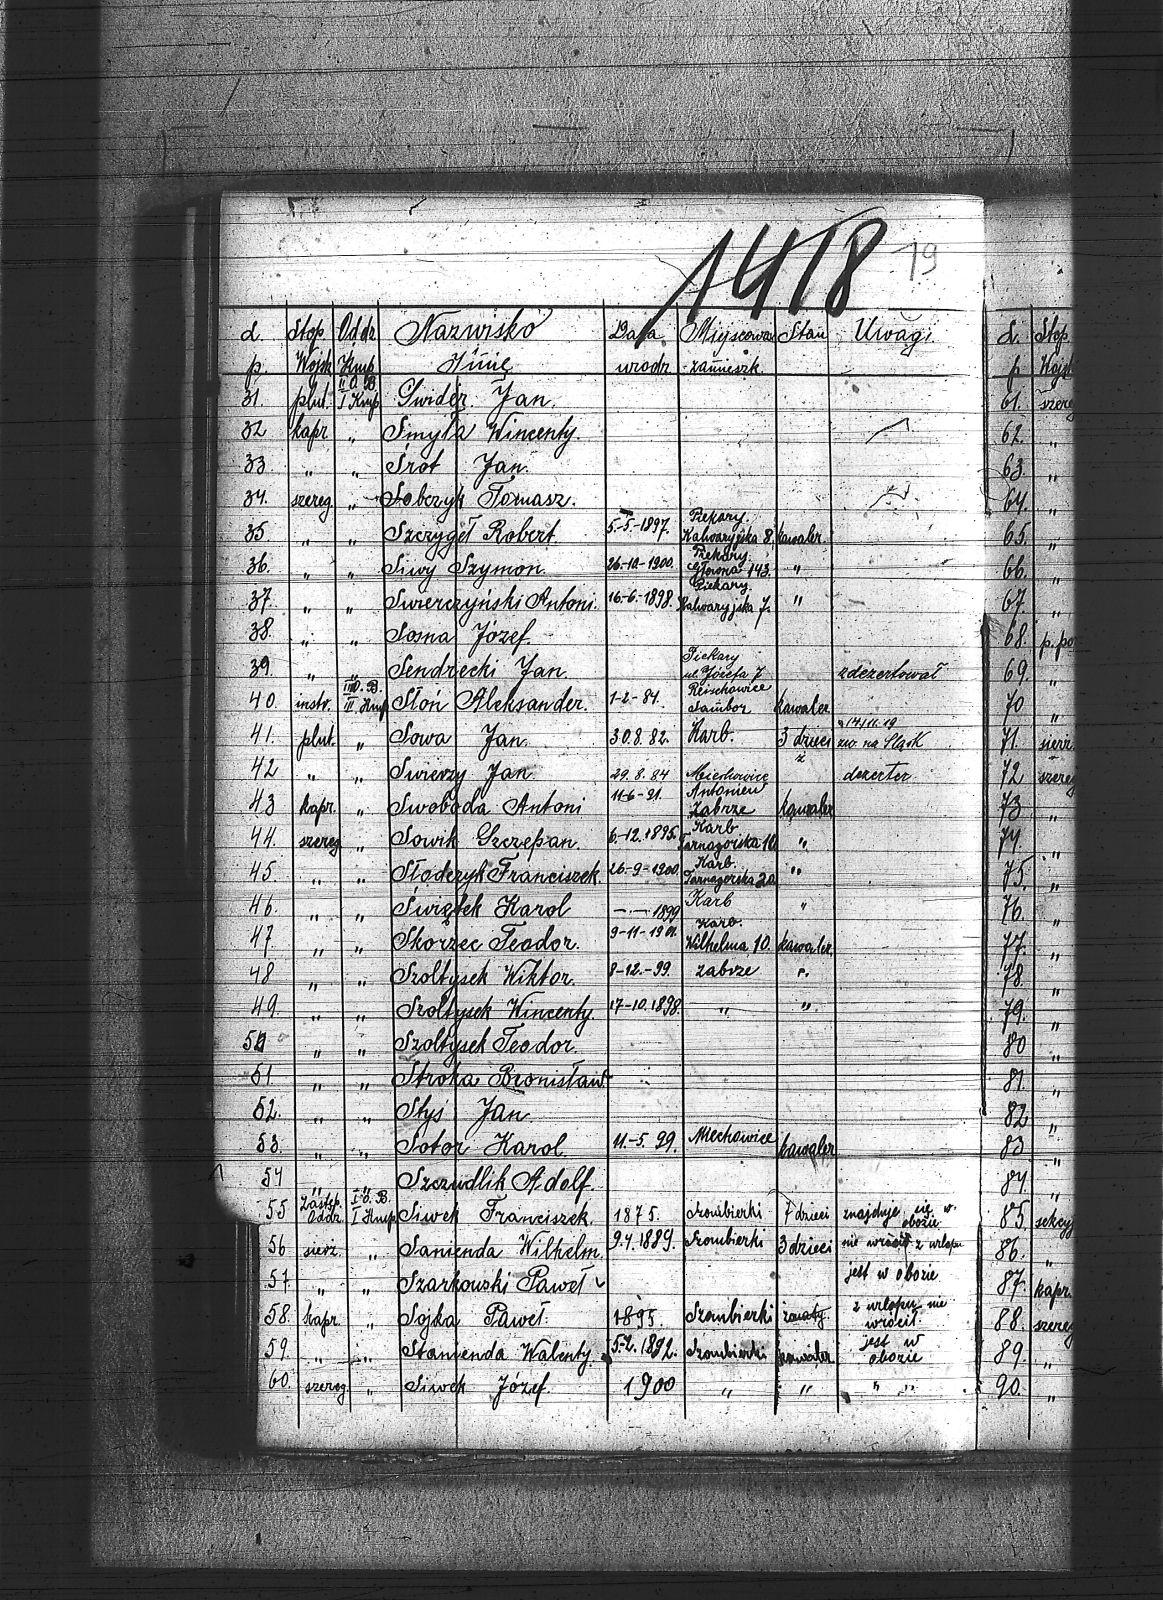 1418 19
L. Stop. Oddz. Nazwisko Data Miejscowo Stan Uwagi
p. Wojsk Kmp Imię urodz. zamieszk.
31. plut. II O. B. I Kmp Świder Jan.
32 kapr. „ Śmyła Wincenty.
33 „ „ Śrot Jan.
34. szereg. „ Sobczyk Tomasz.
35 „ „ Szczygeł Robert 5.-5.-1897. Piekary. Kalwaryjska 8. kawaler.
36. „ „ Siwy Szymon. 26.-10.-1900. Piekary 143. „
37. „ „ Świerczyński Antoni. 16.-6.-1898. Piekary. Kalwaryjska 7. „
38. „ „ Sosna Józef.
39. „ „ Sendrecki Jan. Piekary ul. Józefa 7 zdezerterował
40. instr. III O. B. III. Kmp Słoń Aleksander. 1-2.-84. kawaler
41. plut. „ Sowa Jan. 30.8.82. Karb. 3 dzieci na Śląsk
42 „ „ Świerzy Jan. 29.8.84 Miechowice ż dezerter
43 kapr. „ Swoboda Antoni 11-6.-91. Zabrze kawaler
44. szereg. „ Sowik Szczepan. 6.-12.1895. Karb Tarnogórska 10. „
45. „ „ Słodczyk Franciszek. 26.-9.-1900. Karb. Tarnogórska 20. „
46. „ „ Świątek Karol -.-.-1899 Karb „
47 „ „ Skorzec Teodor. 9-11-1901. Karb. Wilhelma 10. kawaler.
48 „ „ Szołtysek Wiktor. 8-12.-99. Zabrze „
49. „ „ Szołtysek Wincenty. 17-10.1898. „ „
50 „ „ Szołtysek Teodor.
51. „ „ Stroka Bronisław
52. „ „ Styś Jan
53. „ „ Sotor Karol 11.-5.99. Miechowice kawaler
54 „ „ Szczudlik Adolf.
55 Zastęp. Oddz. I O. B. I Kmp Siwek Franciszek. 1875. Szombierki 7 dzieci znajduje się w obozie
56 sierż. „ Stanienda Wilhelm. 9.4.1889. Szombierki 3 dzieci nie wrócił z urlopu
57. „ „ Szarkowski Paweł jest w obozie
58. kapr. „ Sojka Paweł. 1895. Szombierki żonaty z urlopu nie wrócił
59. „ „ Stanienda Walenty. 5-2.1892. Szombierki kawaler jest w obozie
60. szereg. „ Siwek Józef. 1900 „ „ „ „
L. Stop.
p. Wojsk
61. szereg
62. „
63. „
64. „
65. „
66. „
67. „
68. p. po
69. „
70 „
71. sierż.
72 szereg
73 „
74. „
75. „
76. „
77. „
78. „
79. „
80 „
81. „
82 „
83 „
84. „
85. sekcy
86. „
87. kapr.
88. szereg
89. „
90. „